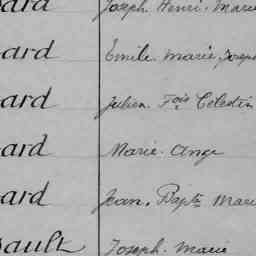 ard Joseph Henri. Marie
ard Emile Marie Joseph
ard Julien. Fois Célestin
ard Marie. Ange
ard Jean. Bapte Marie
ault Joseph. Marie